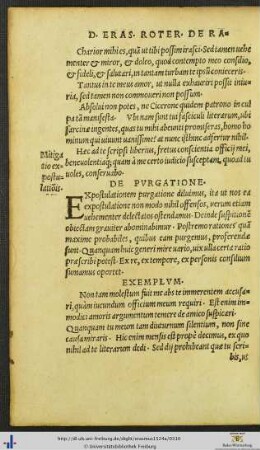 D. ERAS. ROTER. DE RA-
Charior mihi es, quã ut tibi possim irasci. Sed tamen uehe
menter & miror, & doleo, quòd contempto meo consilio,
& fideli, & salutari, in tantam turbam te ipse conieceris.
Tantus in te meus amor, ut nulla exhauriri possit iniu-
ria, sed tamen non commoueri non possum.
Absolui non potes, ne Cicerone quidem patrono in cul
pa tã manifesta. Vbi nam sunt tui fasciculi literarum, ubi
sarcinæ ingentes, quas tu mihi abeunti promiseras, homo ho
minum qui uiuunt uanissime? at nunc
Hæc ad te scripsi liberius, fretus conscientia officij mei,
beneuolentiæq́; quam à me certo iudicio susceptam, quoad tu
uoles, conseruabo.
Mitiga
tio ex-
postu-
lationis.
DE PVRGATIONE.
EXpostulationem purgatione diluimus, ita ut nos ea
expostulatione non modò nihil offensos, uerum etiam
uehementer delectatos ostendamus. Deinde suspitionẽ
obiectam grauiter abominabimur. Postremo rationes quã
maximè probabiles, quibus eam purgemus, proferendæ
sunt. Quanquam huic generi mire uario, uix ulla certe ratio
præscribi potest. Ex re, ex tempore, ex personis consilium
sumamus oportet.
EXEMPLVM.
Non tam molestum fuit me abs te immerentem accusa-
ri, quàm iucundum officium meum requiri. Est enim in-
modus amoris argumentum temere de amico suspicari.
Quanquam tu meum tam diuturnum silentium, non sine
causa miraris. Hic enim mensis est propè decimus, ex quo
nihil ad te literarum dedi. Sed dij prohibeant quæ tu scri
bis, ut
http://dl.ub.uni-freiburg.de/diglit/erasmus1524a/0110
© Universitätsbibliothek Freiburg